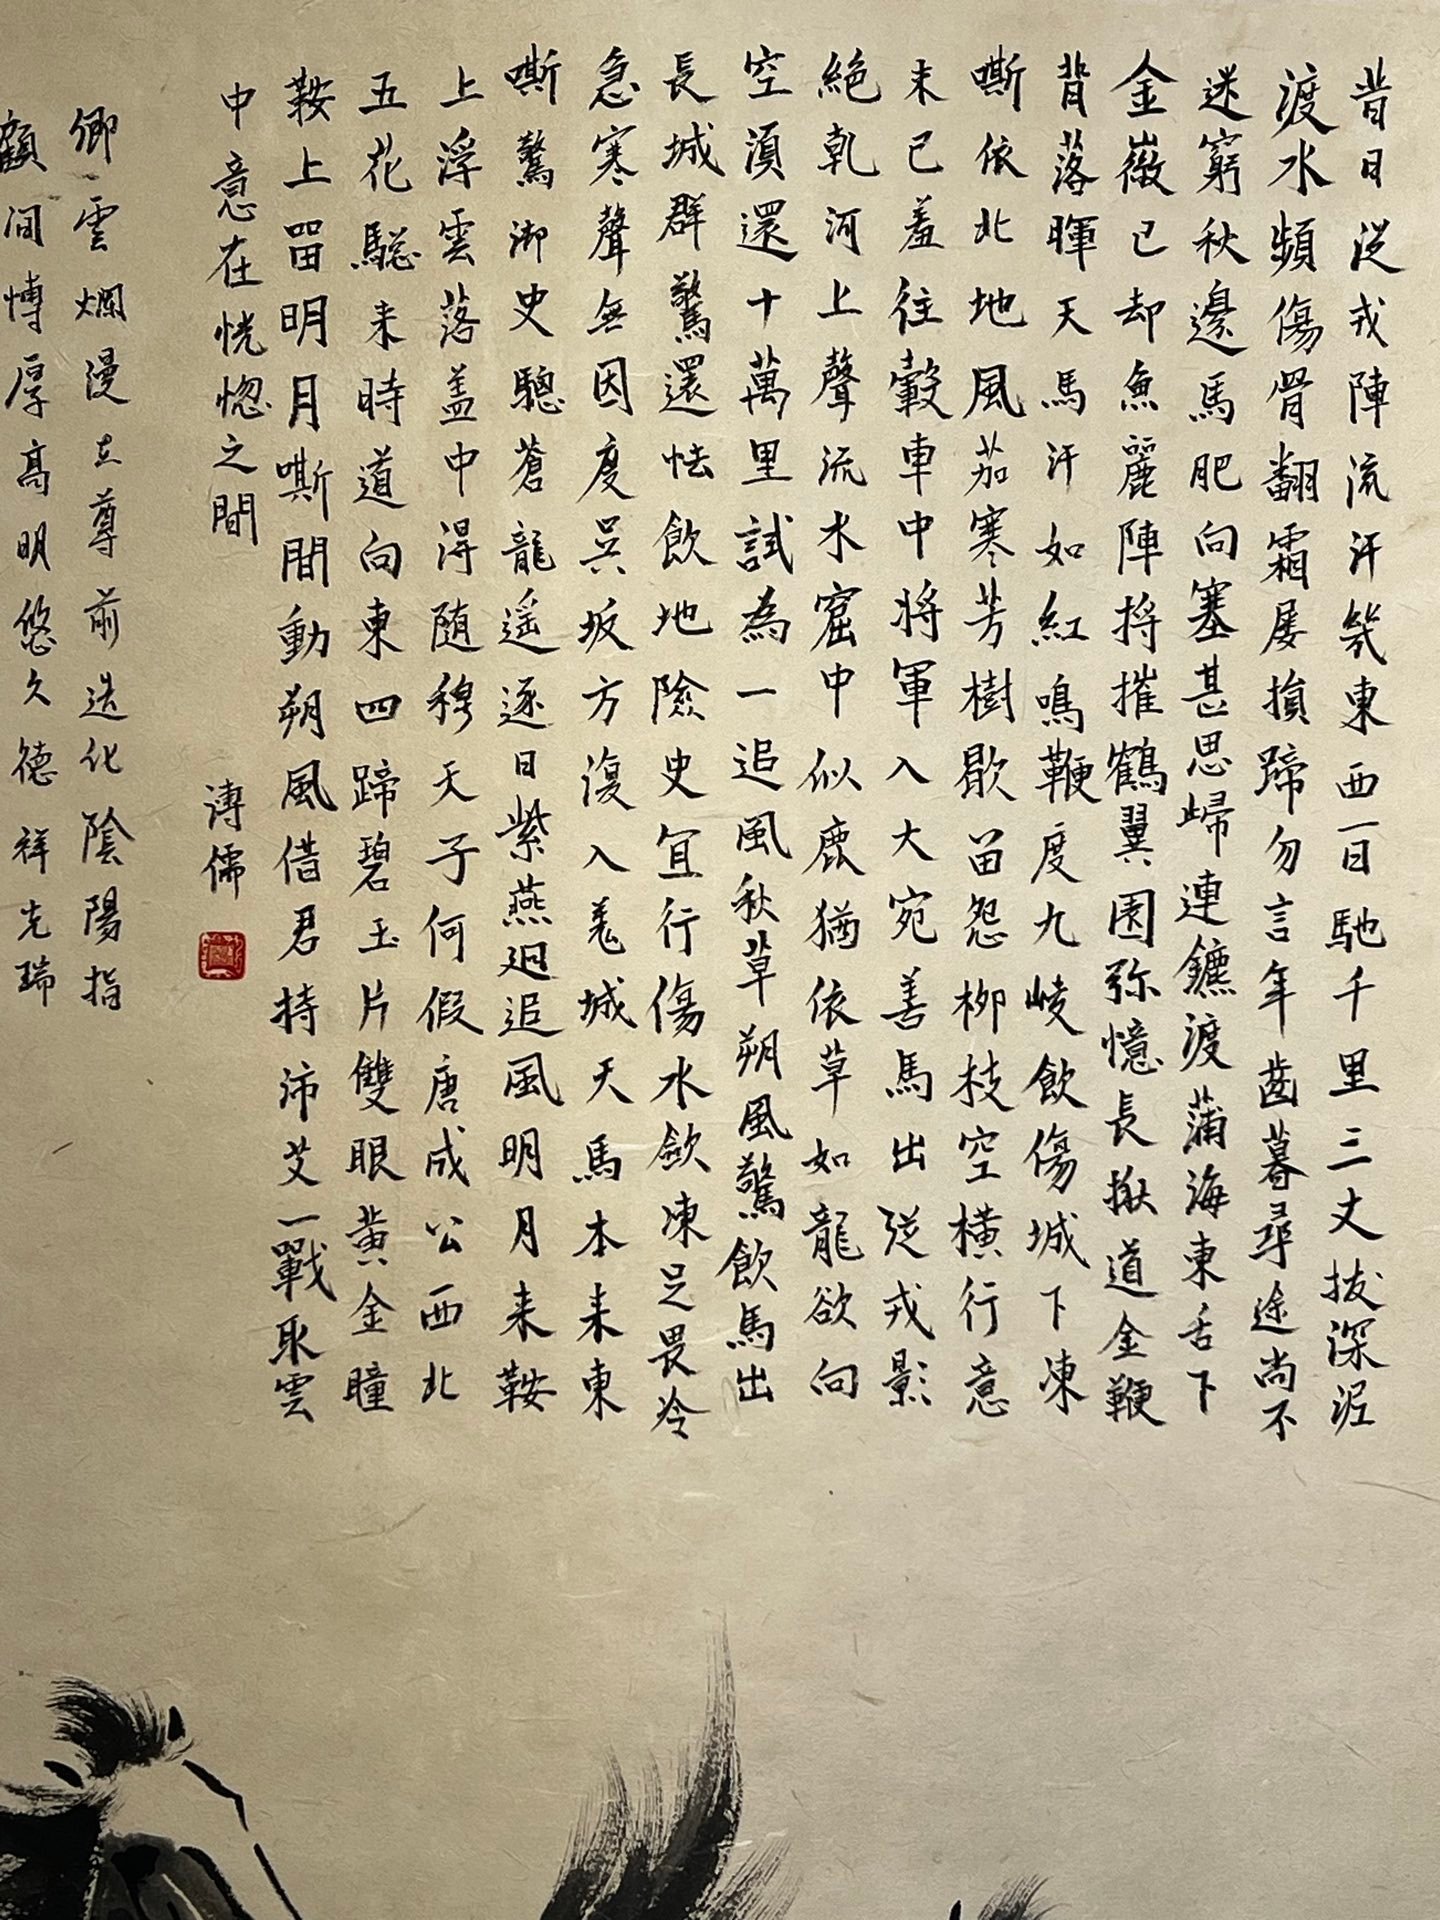 昔日従戎陣流汗幾東西一日馳千里三丈拔深泥
渡水頻傷骨翻霜屡損蹄勿言年齒暮尋途尚不
迷窮秋邊馬肥向塞甚思歸連鑣渡蒲海東舌下
金微已却魚麗陣将摧鶴翼圍弥憶長楸道金鞭
背落暉天馬汗如紅鳴鞭度九崚飲傷城下凍
嘶依北地風茄寒芳樹歇笛怨柳枝空橫行意
未已羞往轂車中将軍入大宛善馬出従戎影
絶乾河上聲流水窟中似鹿猶依草如龍欲向
空湏還十萬里試為一追風秋草朔風驚飲馬出
長城群驚還怯飲地險史宜行傷水飲凍足畏冷
急寒聲無因度吳坂方復入羌城天馬本来東
嘶驚御史驄蒼龍遥逐日紫燕迴追風明月来鞍
上浮雲落盖中得随穆天子何假唐成公西北
五花驄来時道向東四蹄碧玉片雙眼黄金瞳
鞍上留明月嘶間動朔風借君持沛艾一戰取雲
中意在恍惚之間
溥儒
卿雲爛漫立尊前造化陰陽指
顧間博厚高明悠久德祥光瑞